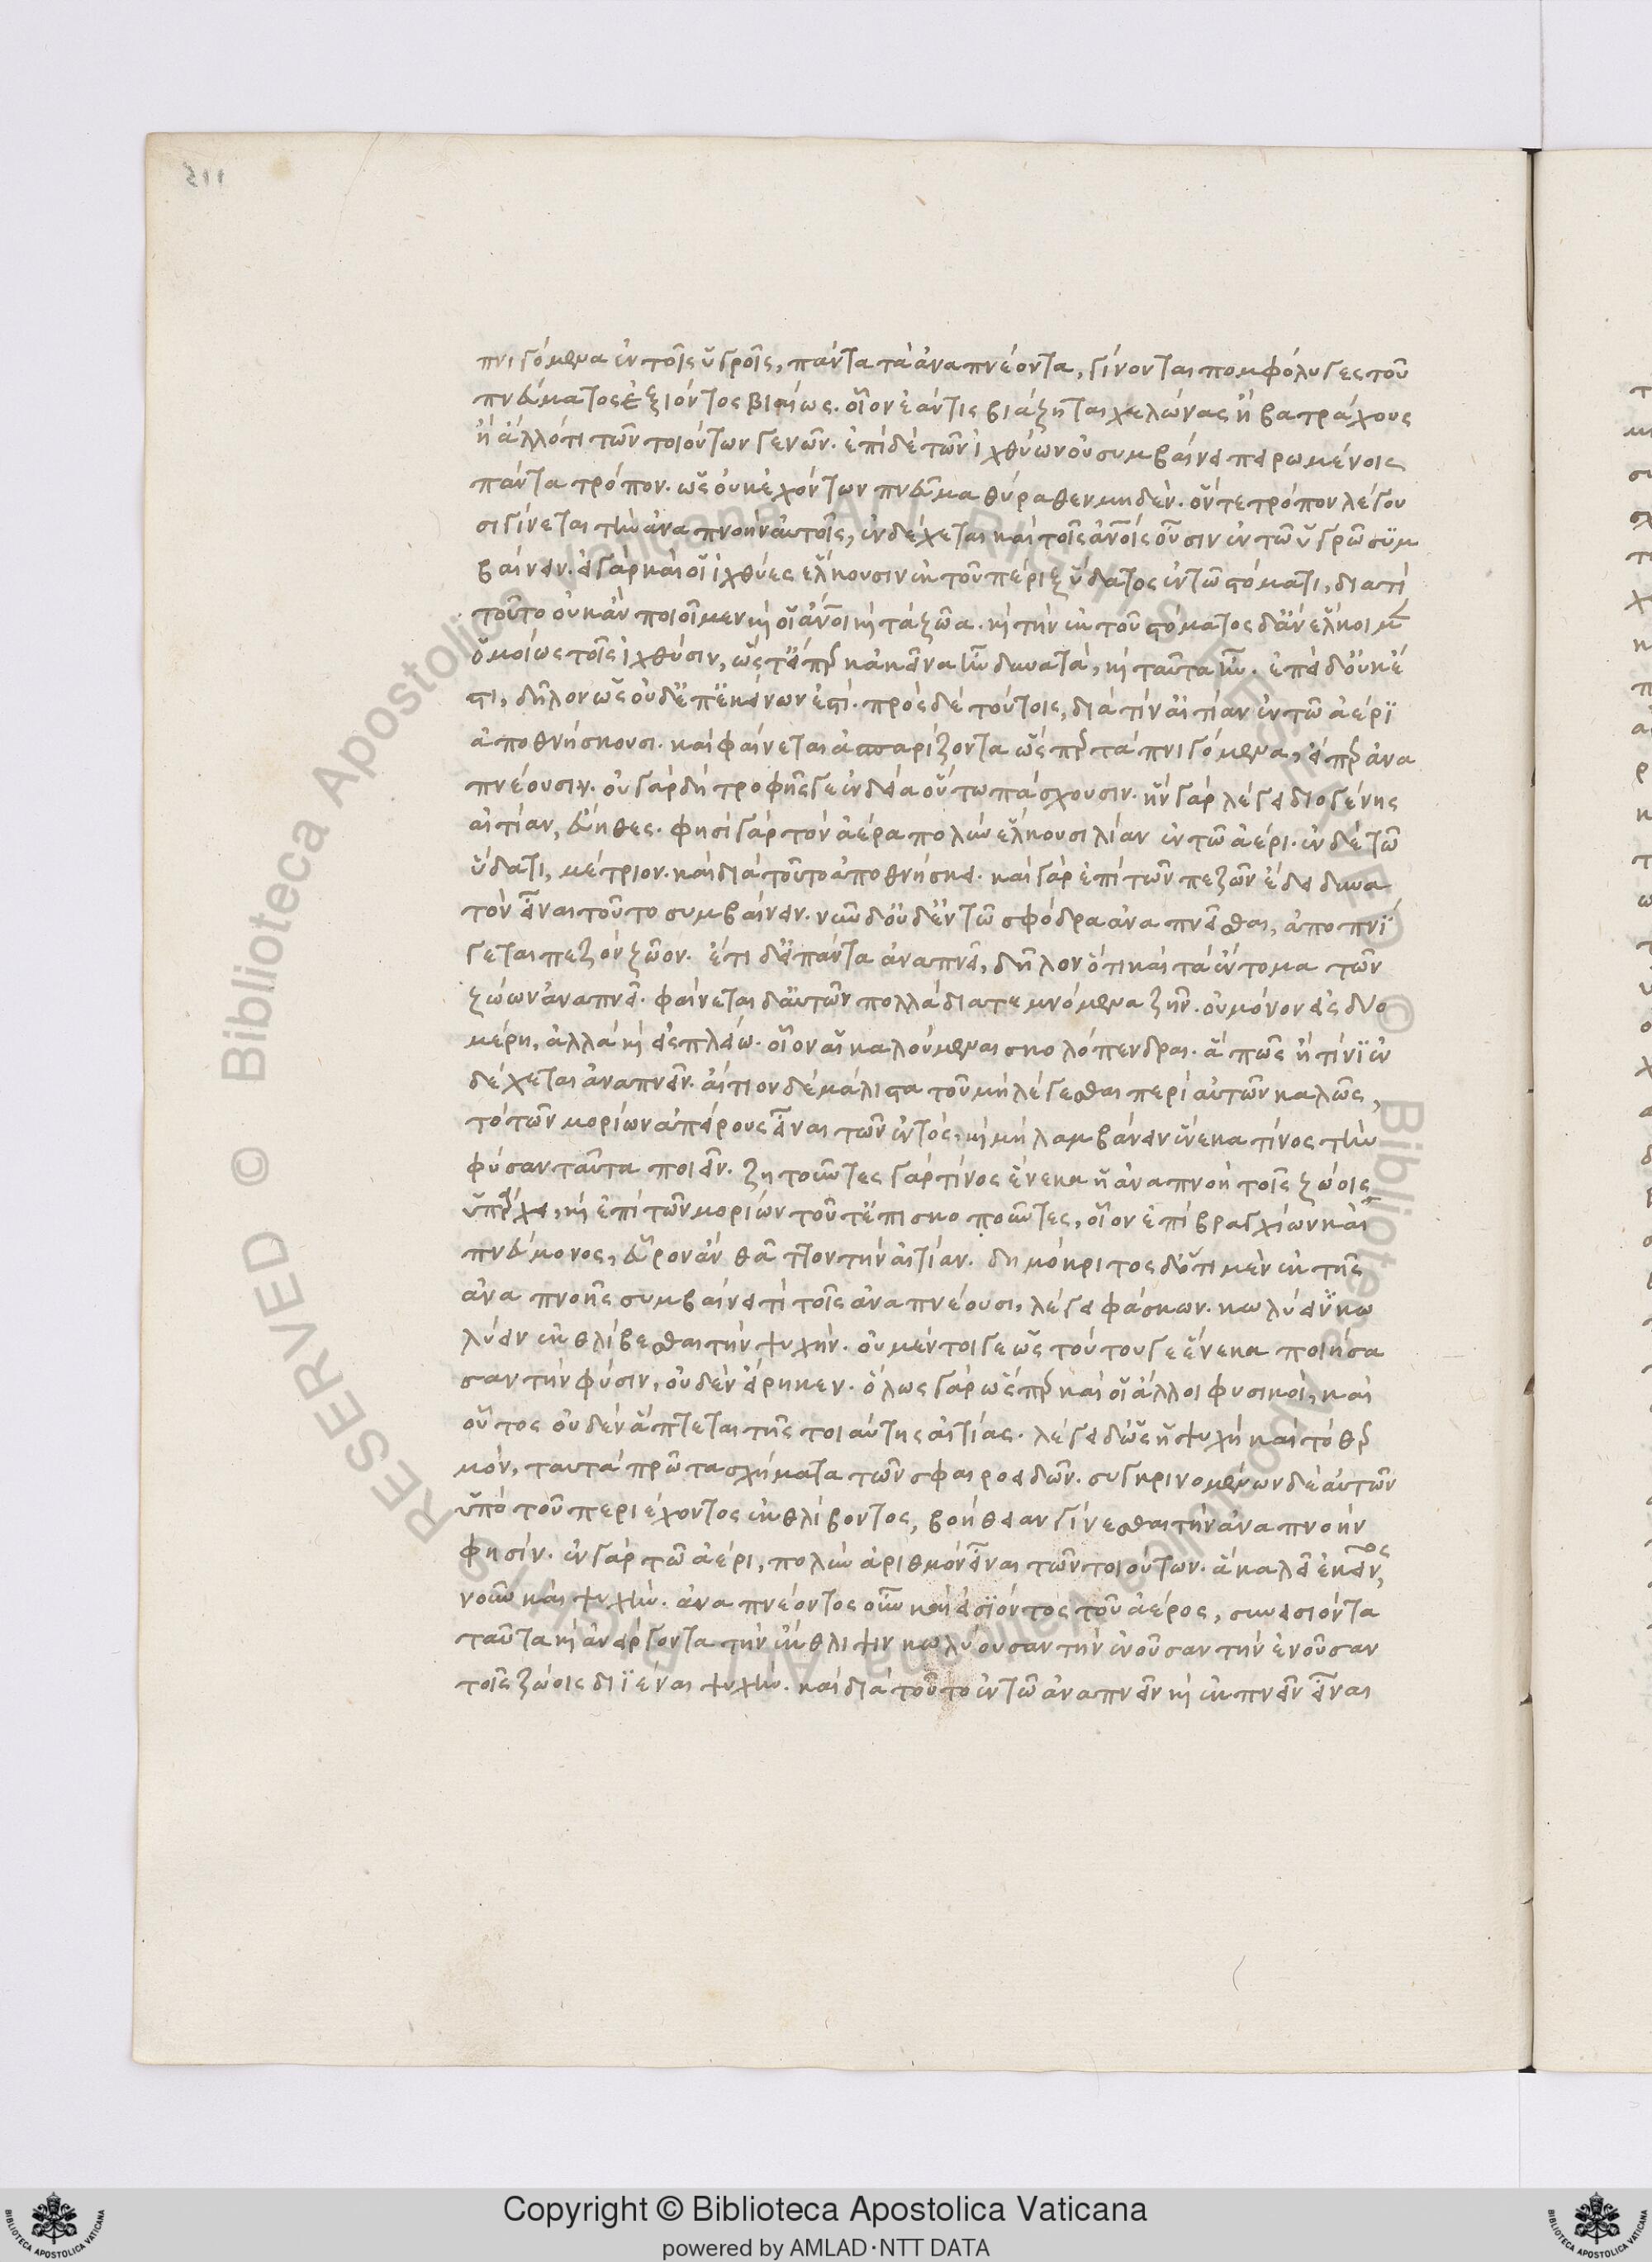 πνιγόμενα ἐν τοῖς ὑγροῖς, πάντα τὰ ἀναπνέοντα, γίνονται πομφόλυγες τοῦ
πνεύματος ἐξιόντος βιαίως. οἷον ἐάν τις βιάζηται χελώνας ἢ βατράχους
ἢ ἄλλό τι τῶν τοιούτων γενῶν. ἐπὶ δὲ τῶν ἰχθύων οὐ συμβαίνει πειρωμένοις
πάντα τρόπον. ὡς οὐκ ἐχόντων πνεῦμα θύραθεν μηδέν. ὅν τε τρόπον λέγου
σι γίνεται τὴν ἀναπνοὴν αὐτοῖς, ἐνδέχεται καὶ τοῖς ἀνοις οὖσιν ἐν τῶ ὑγρῶ συμ
βαίνειν. εἰ γὰρ καὶ οἱ ἰχθύες ἕλκουσιν ἐκ τοῦ πέριξ ὕδατος ἐν τῶ στόματι, διατί
τοῦτο οὐκ ἂν ποιοῖμεν κ οἱ ἄνοι κ τὰ ζῶα. κ τὴν ἐκ τοῦ στόματος δ' ἂν ἕλκοιμ
ὁμοίως τοῖς ἰχθύσιν, ὥστ' εἴπερ κἀκεῖνα ἦν δυνατὰ, κ ταῦτα ἦν. ἐπεὶ δ' οὐκ ἔ
στι, δῆλον ὡς οὐδ' ἐπ' ἐκείνων ἐστί. πρὸς δὲ τούτοις, διὰ τίν' αἰτίαν ἐν τῶ ἀέρι
ἀποθνήσκουσι. καὶ φαίνεται ἀσπαρίζοντα ὥσπερ τὰ πνιγόμενα, εἴπερ ἀνα
πνέουσιν. οὐ γὰρ δὴ τροφῆς γε ἐνδεία οὕτω πάσχουσιν. ἣν γὰρ λέγει διογένης
αἰτίαν, εὐήθες. φησὶ γὰρ τὸν ἀέρα πολὺν ἕλκουσι λίαν ἐν τῶ ἀέρι. ἐν δὲ τῶ
ὕδατι, μέτριον. καὶ διὰ τοῦτο ἀποθνήσκει. καὶ γὰρ ἐπὶ τῶν πεζῶν ἔδει δυνα
τὸν εἶναι τοῦτο συμβαίνειν. νῦν δ' οὐδὲν τῶ σφόδρα ἀναπνεῖσθαι, ἀποπνί
γεται πεζὸν ζῶον. ἔτι δ' εἰ πάντα ἀναπνεῖ, δῆλον ὅτι καὶ τὰ ἔντομα τῶν
ζώων ἀναπνεῖ. φαίνεται δ' αὐτῶν πολλὰ διατεμνόμενα ζῆν. οὐ μόνον εἰς δύο
μέρη, ἀλλὰ κ εἰς πλείω. οἷον αἱ καλούμεναι σκολόπενδραι. ἃ πῶς ἢ τίνι ἐν
δέχεται ἀναπνεῖν. αἴτιον δὲ μάλιστα τοῦ μὴ λέγεσθαι περὶ αὐτῶν καλῶς,
τὸ τῶν μορίων ἀπείρους εἶναι τῶν ἐντός, κ μὴ λαμβάνειν ἕνεκα τίνος τὴν
φύσαν ταῦτα ποιεῖν. ζητοῦντες γὰρ τίνος ἕνεκα ἡ ἀναπνοὴ τοῖς ζώοις
ὑπάρχει, κ ἐπὶ τῶν μορίων τοῦτ' ἐπισκοποῦντες, οἷον ἐπὶ βραγχίων καὶ
πνεύμονος, εὗρον ἂν θᾶττον τὴν αἰτίαν. δημόκριτος δ' ὅτι μὲν ἐκ τῆς
ἀναπνοῆς συμβαίνει τὶ τοῖς ἀναπνέουσι, λέγει φάσκων. κωλύειν κω
λύειν ἐκθλίβεσθαι τὴν ψυχήν. οὐ μέντοι γε ὡς τούτου γε ἕνεκα ποιήσα
σαν τὴν φύσιν, οὐδὲν εἴρηκεν. ὅλως γὰρ ὥσπερ καὶ οἱ ἄλλοι φυσικοὶ, καὶ
οὗτος οὐδὲν ἅπτεται τῆς τοιαύτης αἰτίας. λέγει δ' ὡς ἡ ψυχὴ καὶ τὸ θερ
μὸν, ταυτὰ πρῶτα σχήματα τῶν σφαιροειδῶν. συγκρινομένων δὲ αὐτῶν
ὑπὸ τοῦ περιέχοντος ἐκθλίβοντος, βοήθειαν γίνεσθαι τὴν ἀναπνοήν
φησίν. ἐν γὰρ τῶ ἀέρι, πολὺν ἀριθμὸν εἶναι τῶν τοιούτων. ἃ καλεῖ ἐκεῖνος
νοῦν καὶ ψυχήν. ἀναπνέοντος οὖν καὶ εἰσϊόντος τοῦ ἀέρος, συνεισιόντα
ταῦτα κ ἀνείργοντα τὴν ἔκθλιψιν κωλύουσαν τὴν ἐνοῦσαν τὴν ἐνοῦσαν
τοῖς ζώοις διϊέναι ψυχήν. καὶ διὰ τοῦτο ἐν τῶ ἀναπνεῖν κ ἐκπνεῖν εἶναι
Copyright © Biblioteca Apostolica Vaticana
powered by AMLAD·NTT DATA